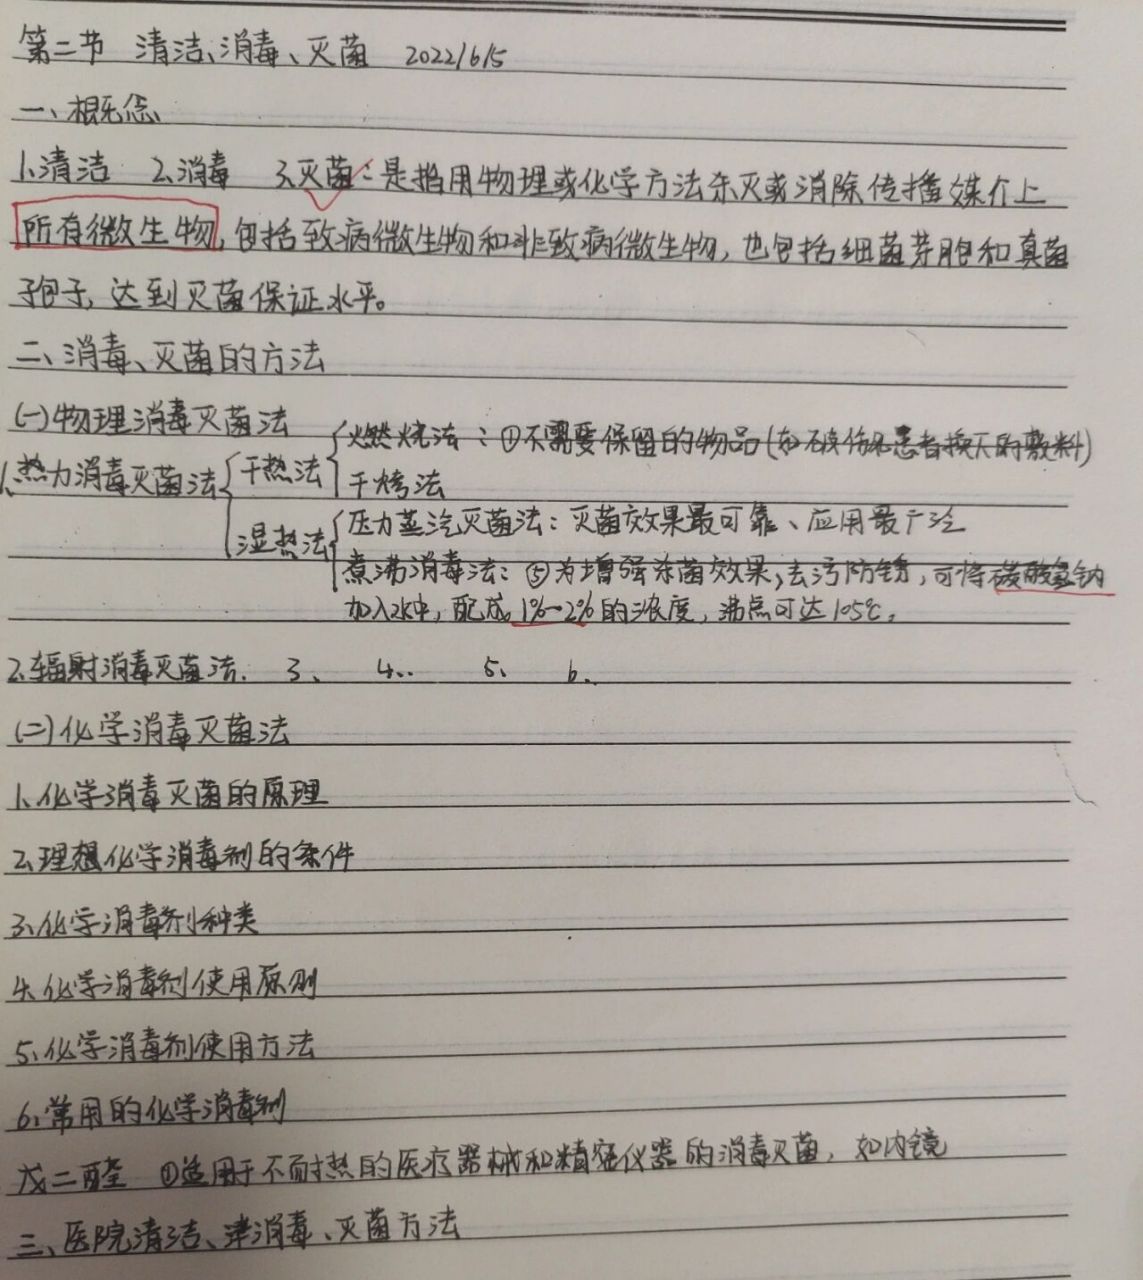 第二节 清洁、消毒、灭菌 2022/6/5
一、概念
1、清洁 2、消毒 3、灭菌：是指用物理或化学方法杀灭或消除传播媒介上
所有微生物，包括致病微生物和非致病微生物，也包括细菌芽胞和真菌
孢子，达到灭菌保证水平。
二、消毒、灭菌的方法
(一)物理消毒灭菌法
燃烧法：①不需要保留的物品(如破伤风患者换下的敷料)
1、热力消毒灭菌法 干热法
干烤法
压力蒸汽灭菌法：灭菌效果最可靠、应用最广泛
湿热法
煮沸消毒法：⑤为增强杀菌效果，去污防锈，可将碳酸氢钠
加入水中，配成1%-2%的浓度，沸点可达105℃。
2、辐射消毒灭菌法. 3、 4.. 5、 6、
(二)化学消毒灭菌法
1、化学消毒灭菌的原理
2、理想化学消毒剂的条件
3、化学消毒剂种类
4、化学消毒剂使用原则
5、化学消毒剂使用方法
6、常用的化学消毒剂
戊二醛 ①适用于不耐热的医疗器械和精密仪器的消毒灭菌，如内镜
三、医院清洁、消毒、灭菌方法